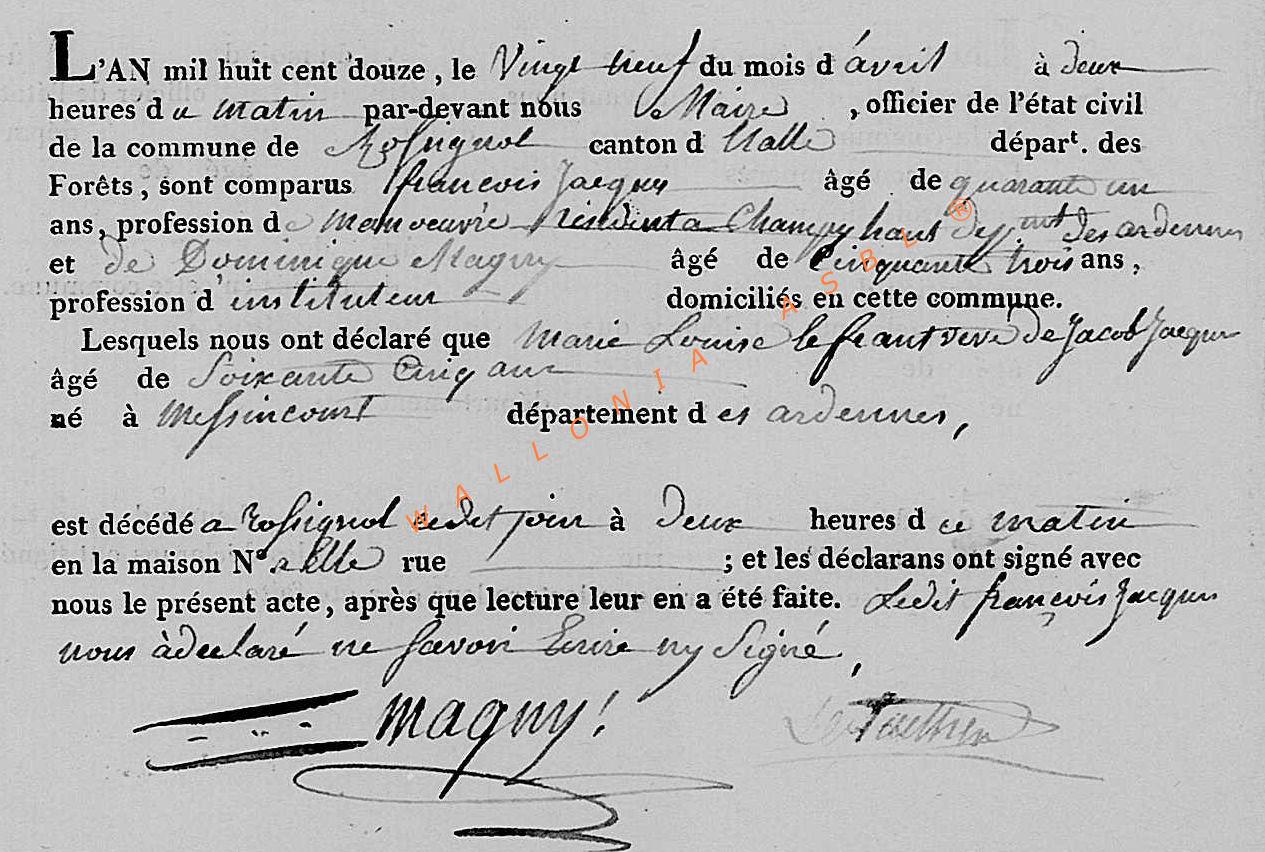 L'AN mil huit cent douze, le Vingt neuf du mois d'avril à deux
heures du matin par-devant nous Le Maire, officier de l'état civil
de la commune de Rossignol canton d'Etalle départ. des
Forêts, sont comparus francois Jacques âgé de quarante un
ans, profession de manoeuvre résident a Champy haut des ardennes
et de Dominique Magny âgé de Cinquante trois ans,
profession d'instituteur domiciliés en cette commune.
Lesquels nous ont déclaré que Marie Louise veuve de Jacob Jacques
âgé de Soixante Cinq ans
né à Messincourt département des ardennes,
est décédé a Rossignol cedit jour à Deux heures du matin
en la maison N°. rue ; et les déclarans ont signé avec
nous le présent acte, après que lecture leur en a été faite. Ledit françois Jacques
nous à declaré ne savoir Ecrire ny Signé,
Magny
WALLONIA ASBL ®